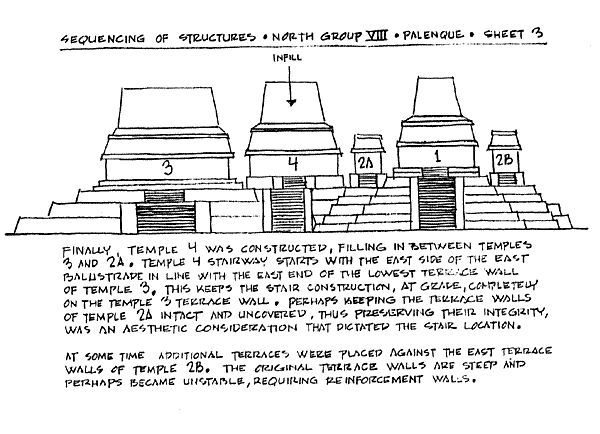 SEQUENCING OF STRUCTURES • NORTH GROUP VIII • PALENQUE • SHEET 3
INFILL
3
4
2A
1
2B
FINALLY, TEMPLE 4 WAS CONSTRUCTED, FILLING IN BETWEEN TEMPLES
3 AND 2A. TEMPLE 4 STAIRWAY STARTS WITH THE EAST SIDE OF THE EAST
BALUSTRADE IN LINE WITH THE EAST END OF THE LOWEST TERRACE WALL
OF TEMPLE 3. THIS KEEPS THE STAIR CONSTRUCTION, AT GRADE, COMPLETELY
ON THE TEMPLE 3 TERRACE WALL. PERHAPS KEEPING THE TERRACE WALLS
OF TEMPLE 2A INTACT AND UNCOVERED, THUS PRESERVING THEIR INTEGRITY,
WAS AN AESTHETIC CONSIDERATION THAT DICTATED THE STAIR LOCATION.
AT SOME TIME ADDITIONAL TERRACES WERE PLACED AGAINST THE EAST TERRACE
WALLS OF TEMPLE 2B. THE ORIGINAL TERRACE WALLS ARE STEEP AND
PERHAPS BECAME UNSTABLE, REQUIRING REINFORCEMENT WALLS.